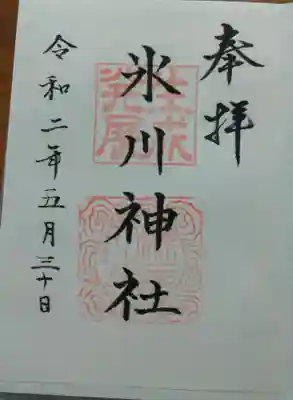 奉拝
氷川神社
令和二年五月三十日